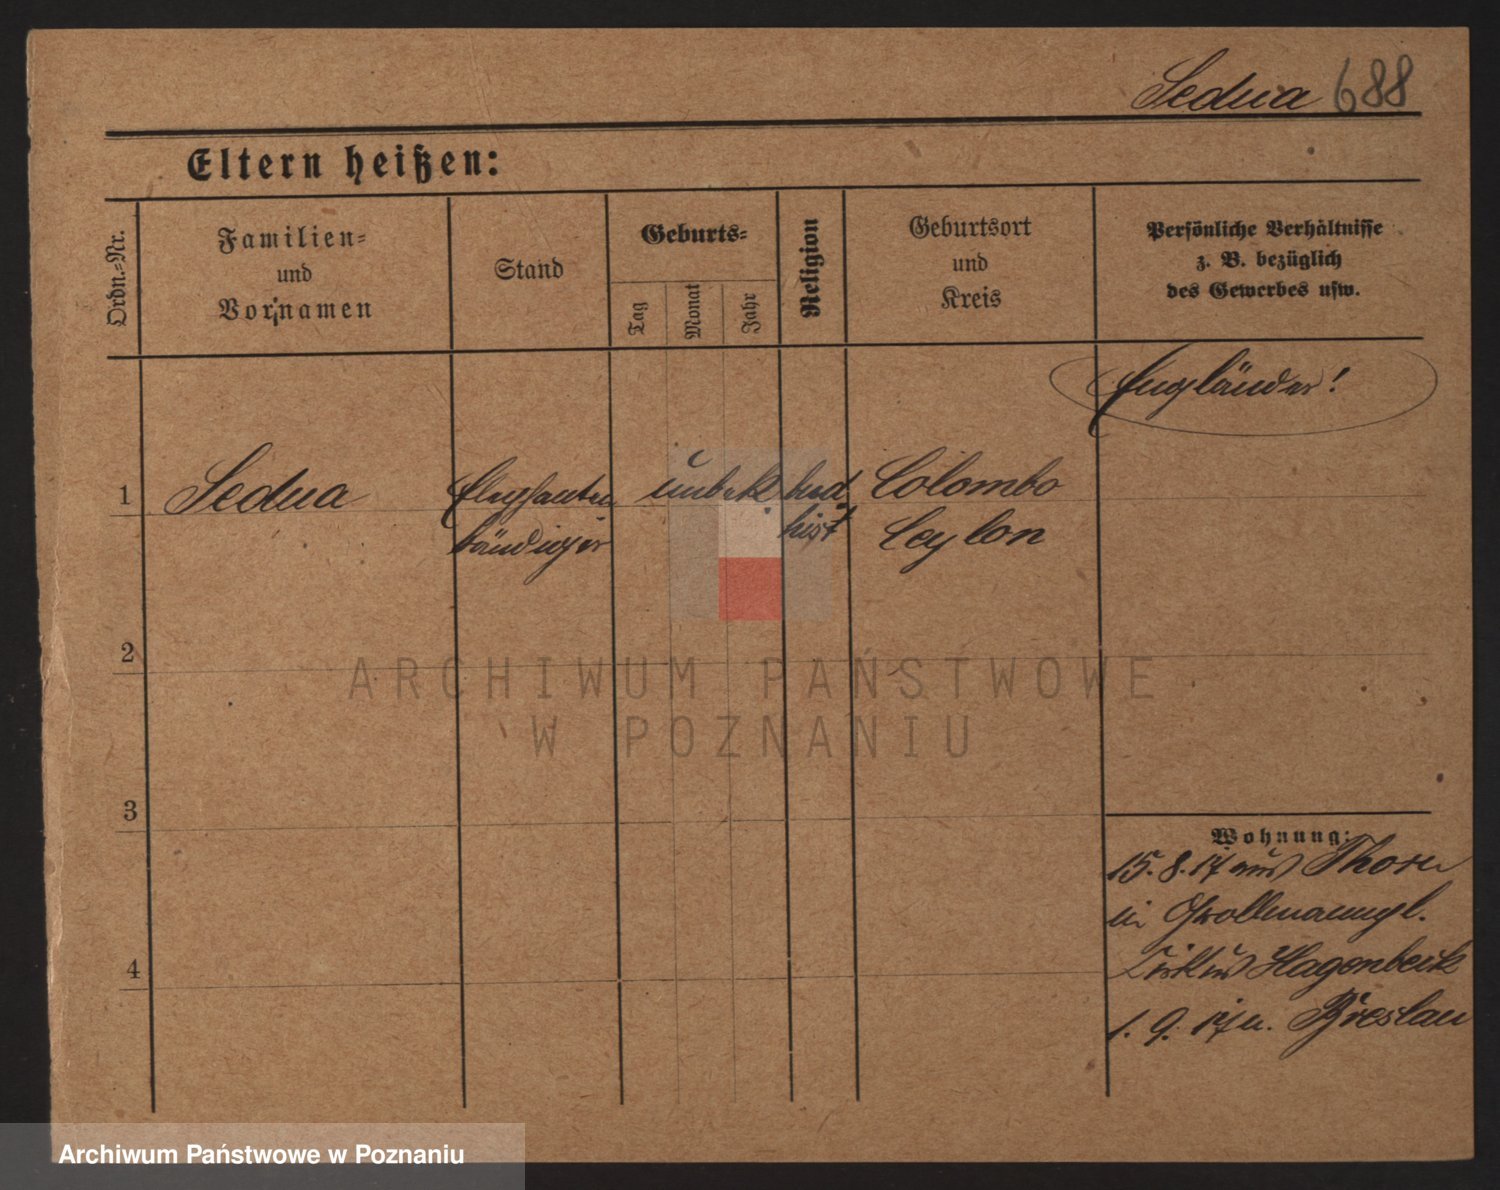 Sedua 688
Eltern heißen:
Ordn.=Nr.
Familien=
und
Vornamen
Stand
Geburts=
Tag
Monat
Jahr
Religion
Geburtsort
und
Kreis
Persönliche Verhältnisse
z. B. bezüglich
des Gewerbes usw.
Engländer!
1 Sedua Elephanten unbek. bud Colombo
bändiger hist Ceylon
2
ARCHIWUM PAŃSTWOWE
W POZNANIU
3
Wohnung:
15. 8. 17 aus Thorn
in
Zirkus Hagenbeck
1. 9. 17 n. Breslau
4
Archiwum Państwowe w Poznaniu